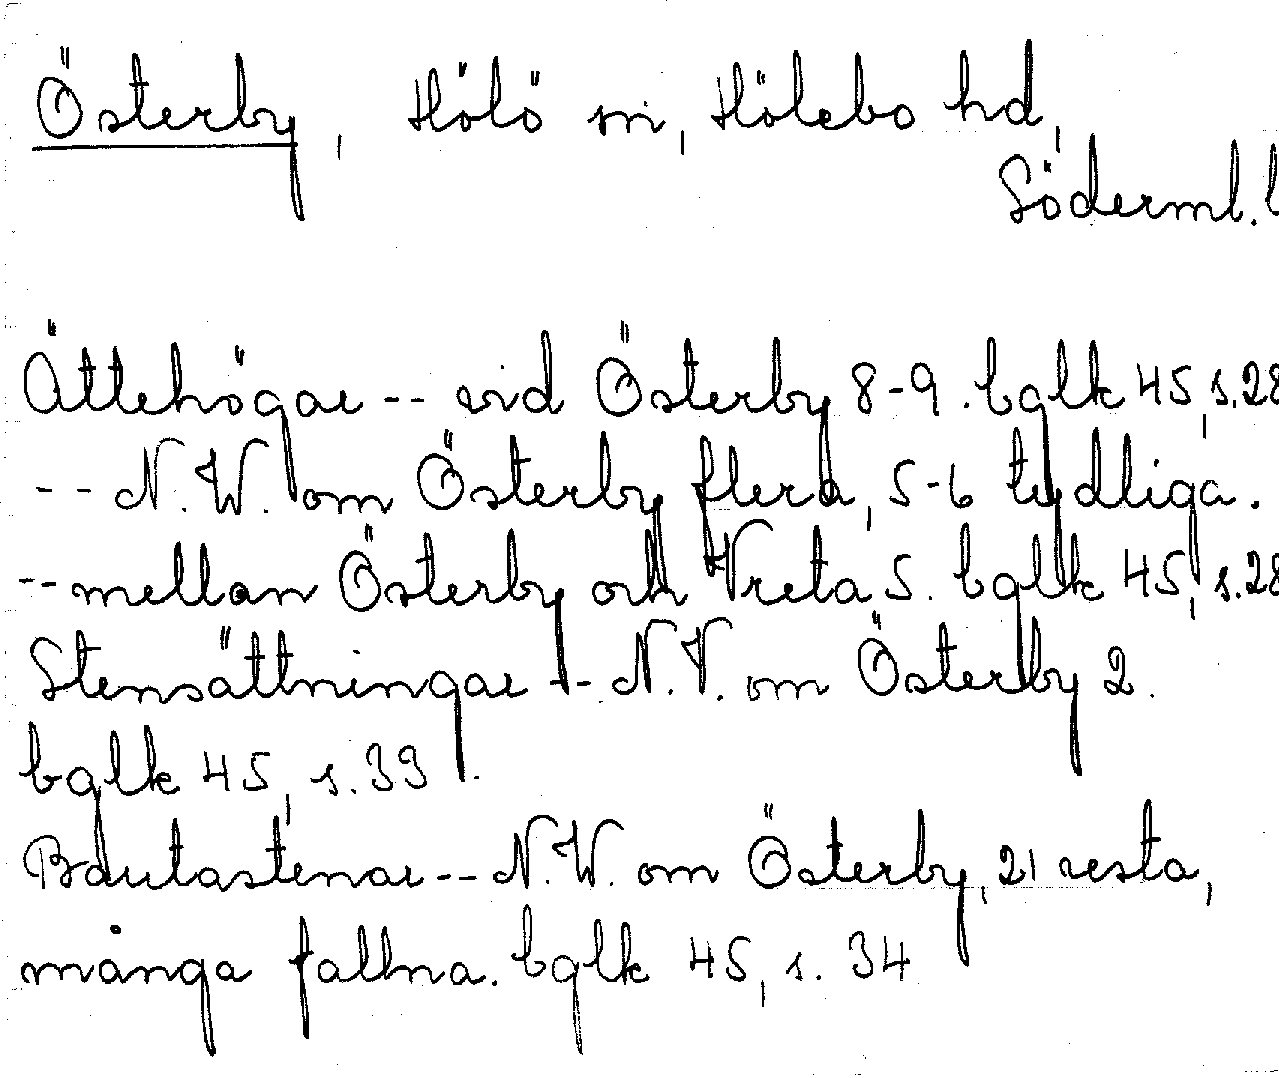 Österby, Hölö sn, Hölebo hd,
Söderml. l
Ättehögar -- vid Österby 8-9. bglk 45, s.28
-- N.W. om Österby flera, 5-6 tydliga.
-- mellan Österby och Vreta 5. bglk 45, s.28
Stensättningar -- N.V. om Österby 2.
bglk 45, s.33.
Bautastenar -- N.W. om Österby, 21 resta,
många fallna. bglk 45, s. 34